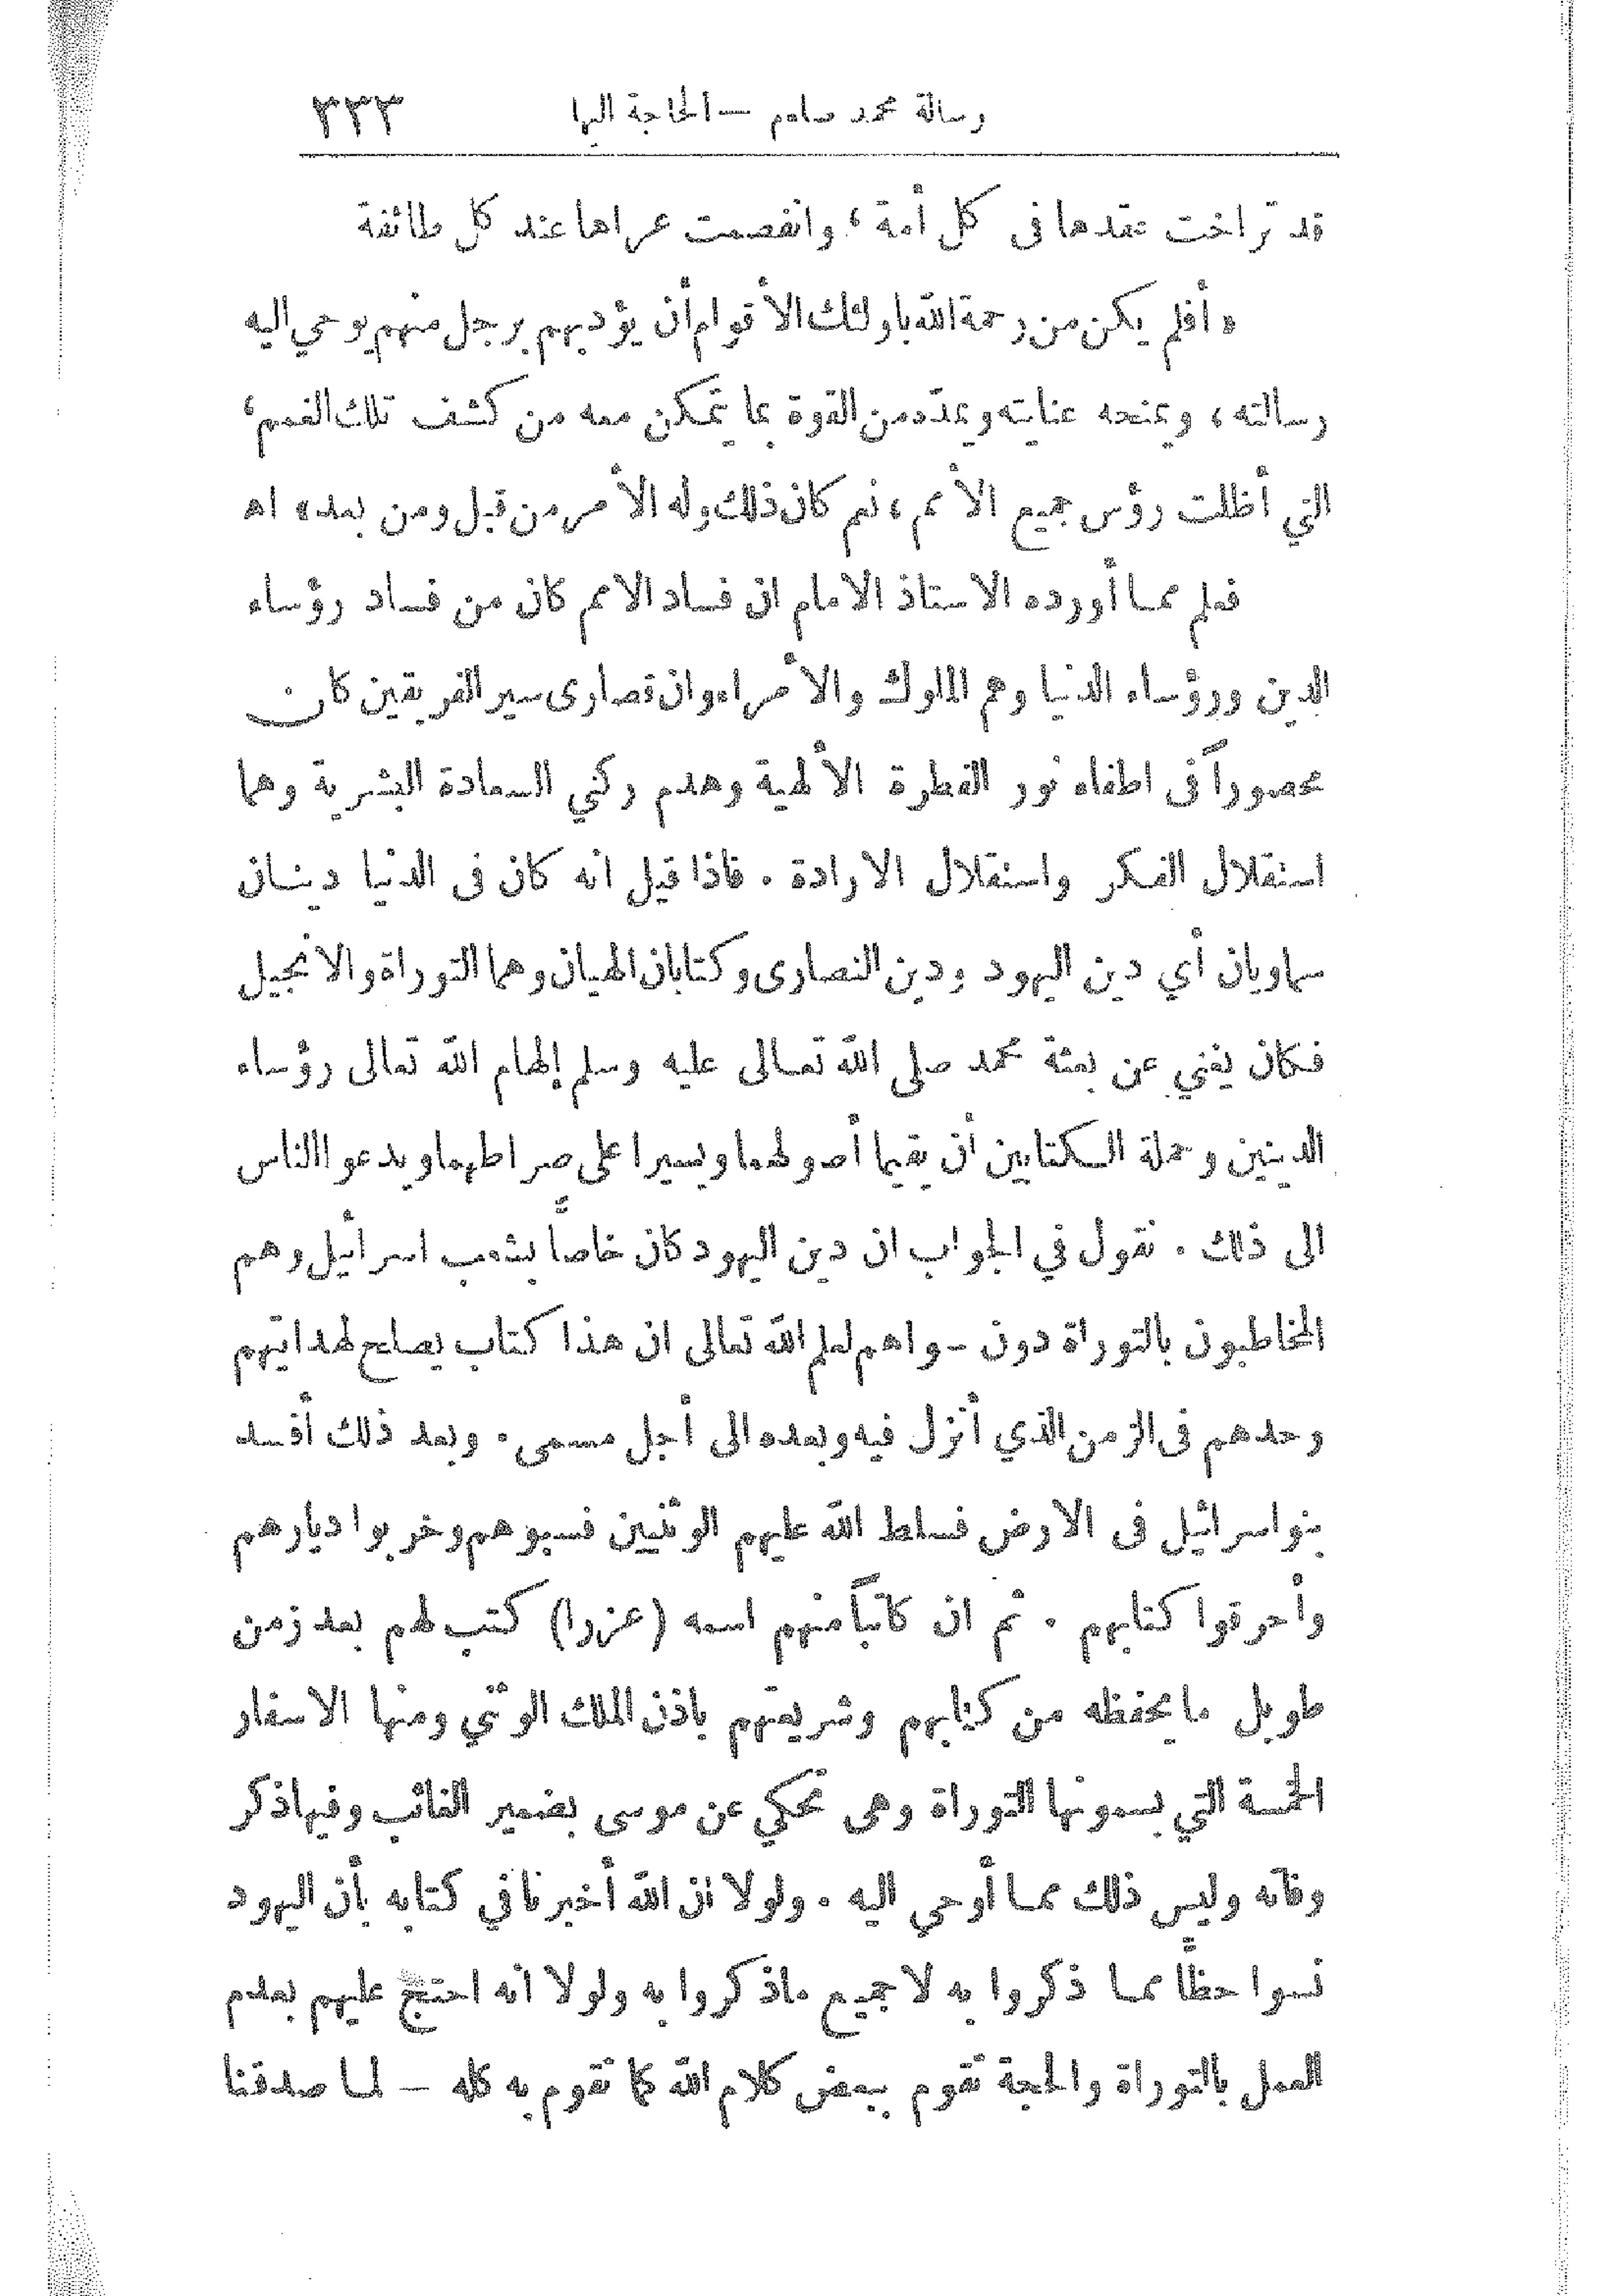 رسالة محمد صلعم — الحاجة اليها ٣٣٣
قد تراخت عقدها فى كل أمة ، وانفصمت عراها عند كل طائفة
« أفلم يكن من رحمة الله باولئك الأقوام أن يؤدبهم برجل منهم يوحي اليه
رسالته ، ويمنحه عنايته ويمدّه من القوة بما يتمكن معه من كشف تلك الغمم ،
التي أظلت رؤس جميع الأمم ، نعم كان ذلك وله الأمر من قبل ومن بعد» اهـ
فعلم مما أورده الاستاذ الامام ان فساد الامم كان من فساد رؤساء
الدين ورؤساء الدنيا وهم الملوك والأمراء وان قصارى سير الفريقين كان
محصوراً فى اطفاء نور الفطرة الألهية وهدم ركني السعادة البشرية وهما
استقلال الفكر واستقلال الارادة . فاذا قيل انه كان فى الدنيا دينان
سماويان أي دين اليهود ودين النصارى وكتابان الهيان وهما التوراة والانجيل
فكان يغني عن بعثة محمد صلى الله تعالى عليه وسلم إلهام الله تعالى رؤساء
الدينين وحملة الكتابين أن يقيما أصولهما ويسيرا على صراطهما ويدعوا الناس
الى ذلك . نقول في الجواب ان دين اليهود كان خاصاً بشعب اسرائيل وهم
المخاطبون بالتوراة دون سواهم لعلم الله تعالى ان هذا كتاب يصلح لهدايتهم
وحدهم فى الزمن الذي أنزل فيه وبعده الى أجل مسمى . وبعد ذلك أفسد
بنو اسرائيل فى الارض فسلط الله عليهم الوثنيين فسبوهم وخربوا ديارهم
وأحرقوا كتابهم . ثم ان كاتباً منهم اسمه (عزرا) كتب لهم بعد زمن
طويل ما يحفظه من كتابهم وشريعتهم باذن الملك الوثني ومنها الاسفار
الخمسة التي يسمونها التوراة وهى تحكي عن موسى بضمير الغائب وفيها ذكر
وفاته وليس ذلك مما أوحي اليه . ولولا ان الله أخبرنا في كتابه بأن اليهود
نسوا حظاً مما ذكروا به لا جميع ماذكروا به ولولا انه احتج عليهم بعدم
العمل بالتوراة والحجة تقوم ببعض كلام الله كما تقوم به كله — لما صدقنا